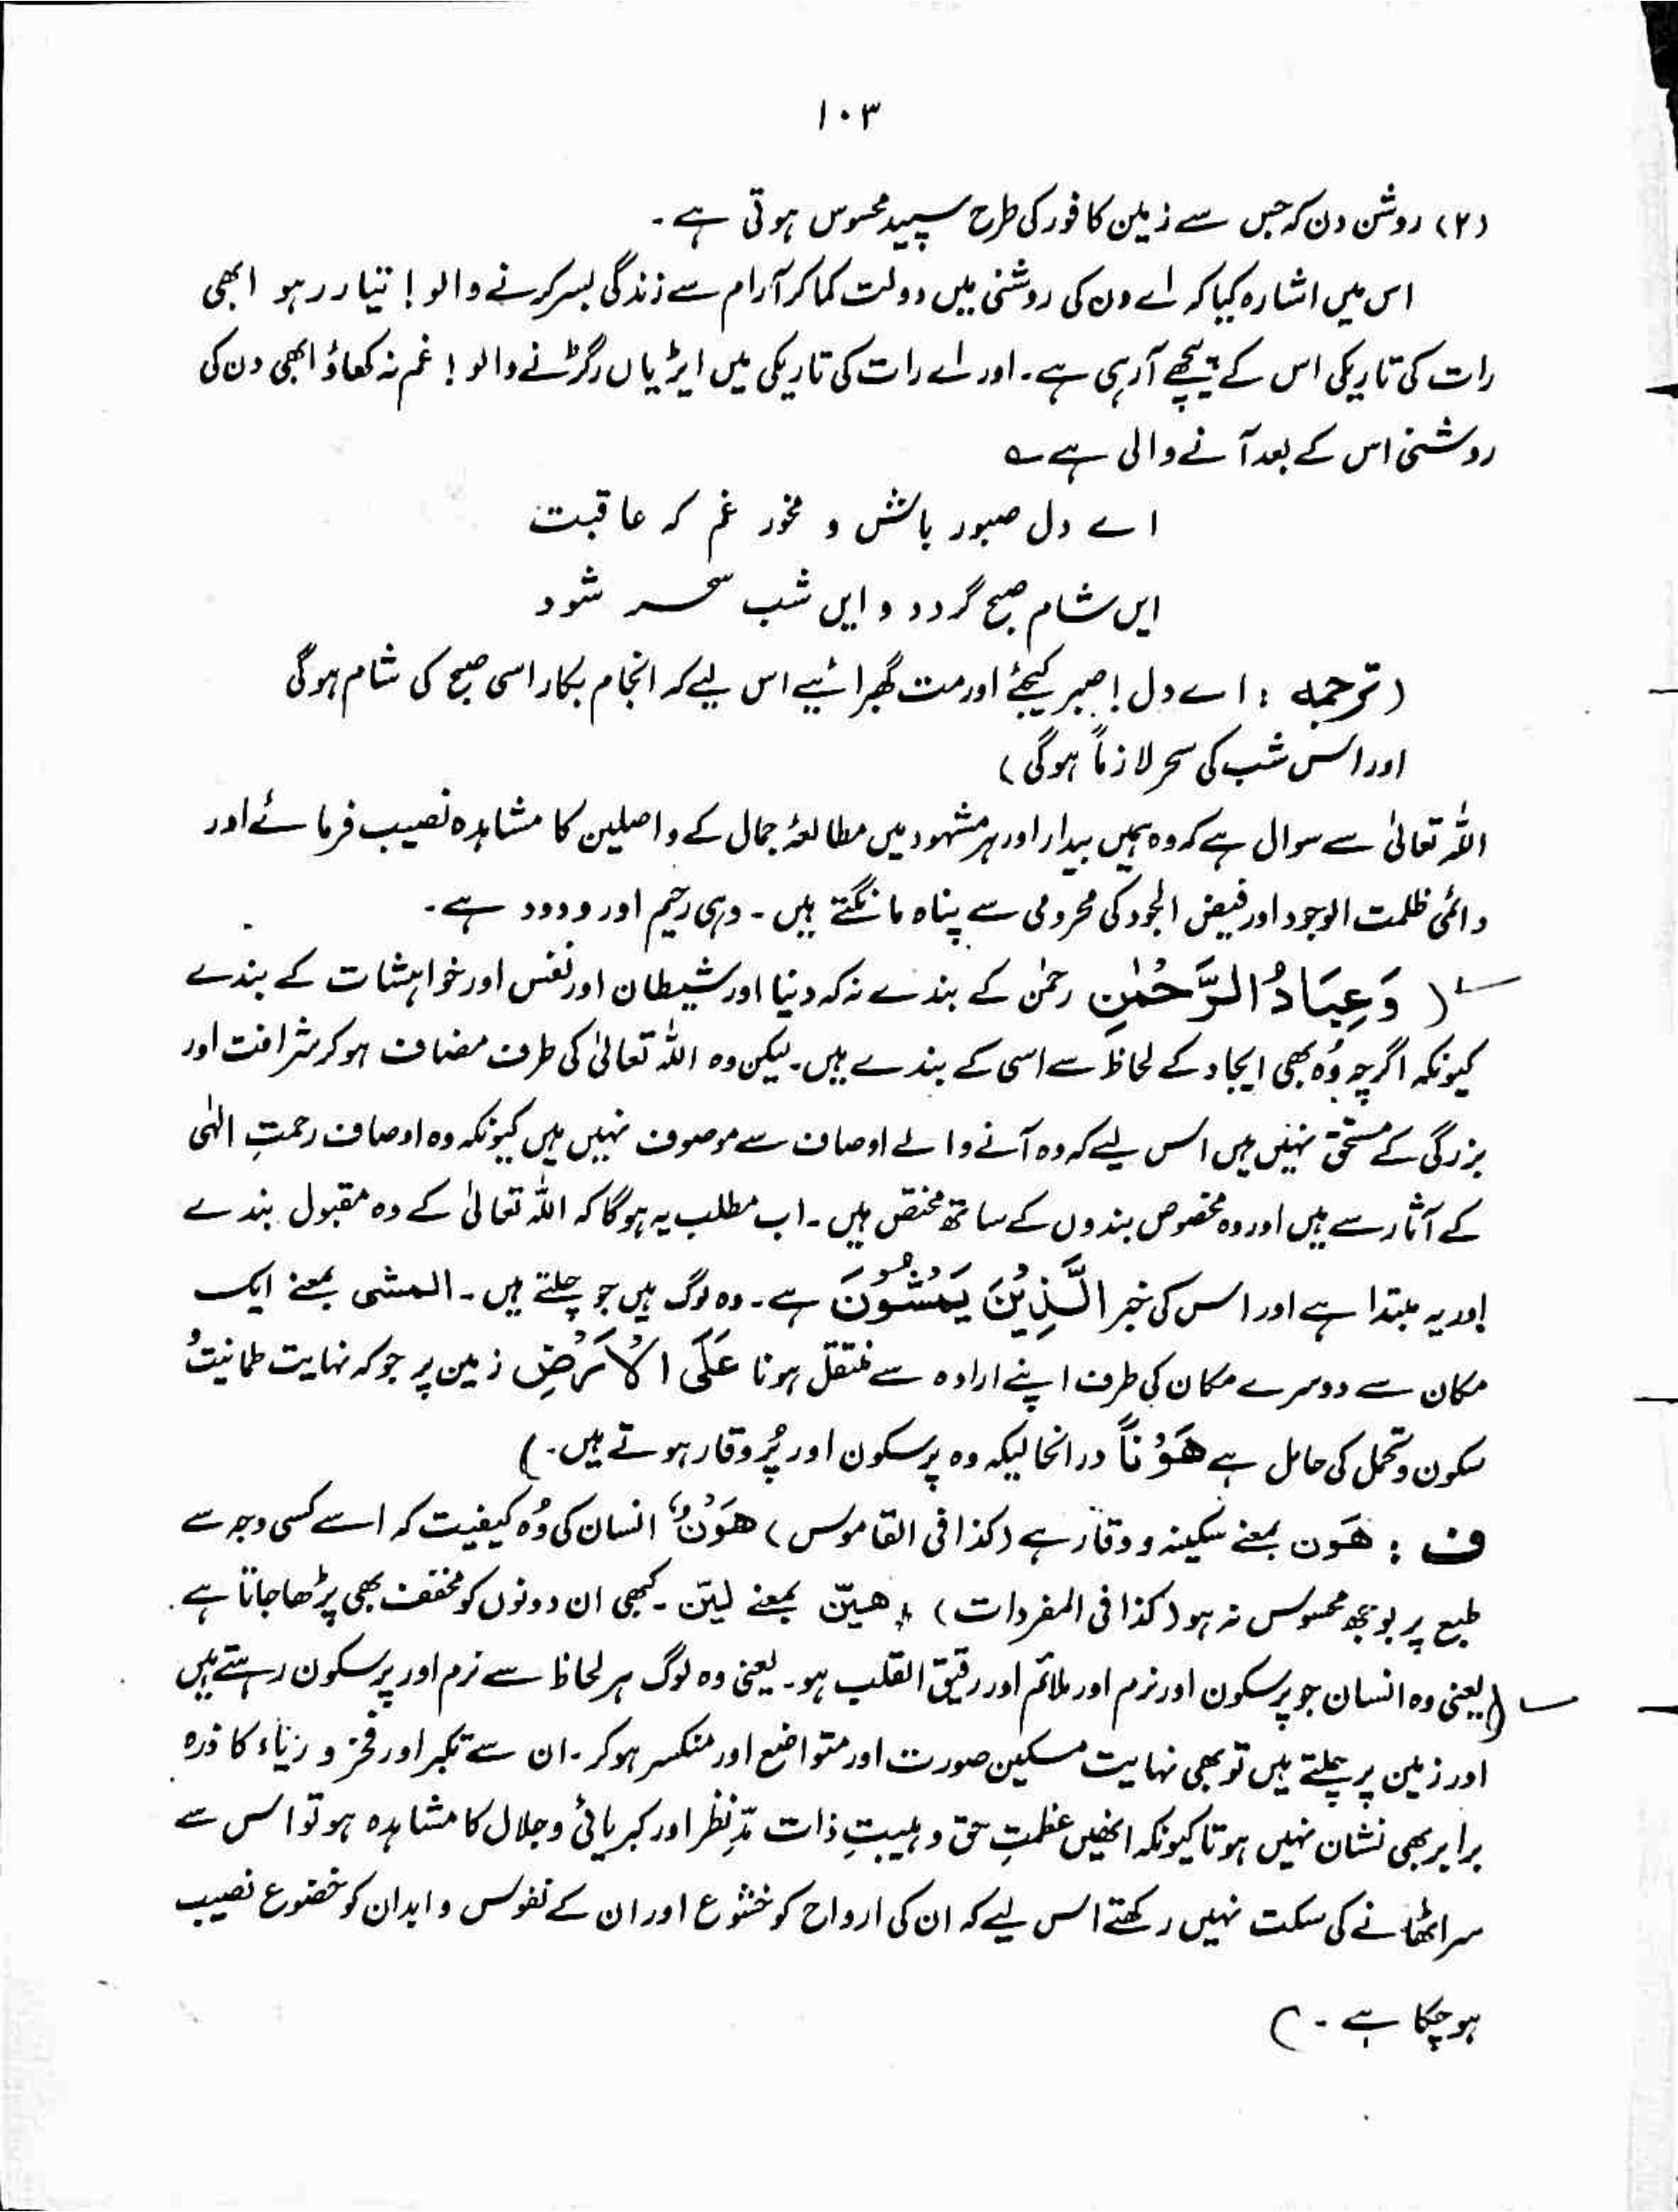 ۱۰۳
(۲) روشن دن کہ جس سے زمین کافور کی طرح سپید محسوس ہوتی ہے۔
اس میں اشارہ کیا کہ اے دن کی روشنی میں دولت کما کر آرام سے زندگی بسر کرنے والو! تیار رہو ابھی
رات کی تاریکی اس کے پیچھے آ رہی ہے۔ اور اے رات کی تاریکی میں ایڑیاں رگڑنے والو! غم نہ کھاؤ ابھی دن کی
روشنی اس کے بعد آنے والی ہے ؎
اے دل صبور باش و مخور غم کہ عاقبت
ایں شام صبح گردد و ایں شب سحر شود
(ترجمہ: اے دل! صبر کیجئے اور مت گھبرائیے اس لیے کہ انجام بکار اسی صبح کی شام ہوگی
اور اس شب کی سحر لازماً ہوگی)
اللہ تعالیٰ سے سوال ہے کہ وہ ہمیں بیدار اور ہر مشہود میں مطالعۂ جمال کے واصلین کا مشاہدہ نصیب فرمائے اور
دائمی ظلمت الوجود اور فیض الجود کی محرومی سے پناہ مانگتے ہیں۔ وہی رحیم اور ودود ہے۔
( وَعِبَادُ الرَّحْمٰنِ رحمٰن کے بندے نہ کہ دنیا اور شیطان اور نفس اور خواہشات کے بندے
کیونکہ اگرچہ وُہ بھی ایجاد کے لحاظ سے اسی کے بندے ہیں۔ لیکن وہ اللہ تعالیٰ کی طرف مضاف ہو کر شرافت اور
بزرگی کے مستحق نہیں ہیں اس لیے کہ وہ آنے والے اوصاف سے موصوف نہیں ہیں کیونکہ وہ اوصاف رحمتِ الٰہی
کے آثار سے ہیں اور وہ مخصوص بندوں کے ساتھ مختص ہیں۔ اب مطلب یہ ہوگا کہ اللہ تعالیٰ کے وہ مقبول بندے
اور یہ مبتدا ہے اور اس کی خبر الَّذِیْنَ یَمْشُوْنَ ہے۔ وہ لوگ ہیں جو چلتے ہیں۔ المشی بمعنے ایک
مکان سے دوسرے مکان کی طرف اپنے ارادہ سے منتقل ہونا عَلَی الْاَرْضِ زمین پر جو کہ نہایت طمانیت
سکون و تحمل کی حامل ہے هَوْنًا درانحالیکہ وہ پرسکون اور پُروقار ہوتے ہیں۔)
ف: هَون بمعنے سکینہ و وقار ہے (کذا فی القاموس) هَوْنٌ انسان کی وُہ کیفیت کہ اسے کسی وجہ سے
طبع پر بوجھ محسوس نہ ہو (کذا فی المفردات) هیّن بمعنے لیّن۔ کبھی ان دونوں کو مخفف بھی پڑھا جاتا ہے۔
(یعنی وہ انسان جو پرسکون اور نرم اور ملائم اور رقیق القلب ہو۔ یعنی وہ لوگ ہر لحاظ سے نرم اور پرسکون رہتے ہیں
اور زمین پر چلتے ہیں تو بھی نہایت مسکین صورت اور متواضع اور منکسر ہو کر۔ ان سے تکبر اور فخر و ریاء کا ذرہ
برابر بھی نشان نہیں ہوتا کیونکہ انھیں عظمتِ حق و ہیبتِ ذات مدِّنظر اور کبریائی و جلال کا مشاہدہ ہو تو اس سے
سر اٹھانے کی سکت نہیں رکھتے اس لیے کہ ان کی ارواح کو خشوع اور ان کے نفوس و ابدان کو خضوع نصیب
ہو چکا ہے۔)